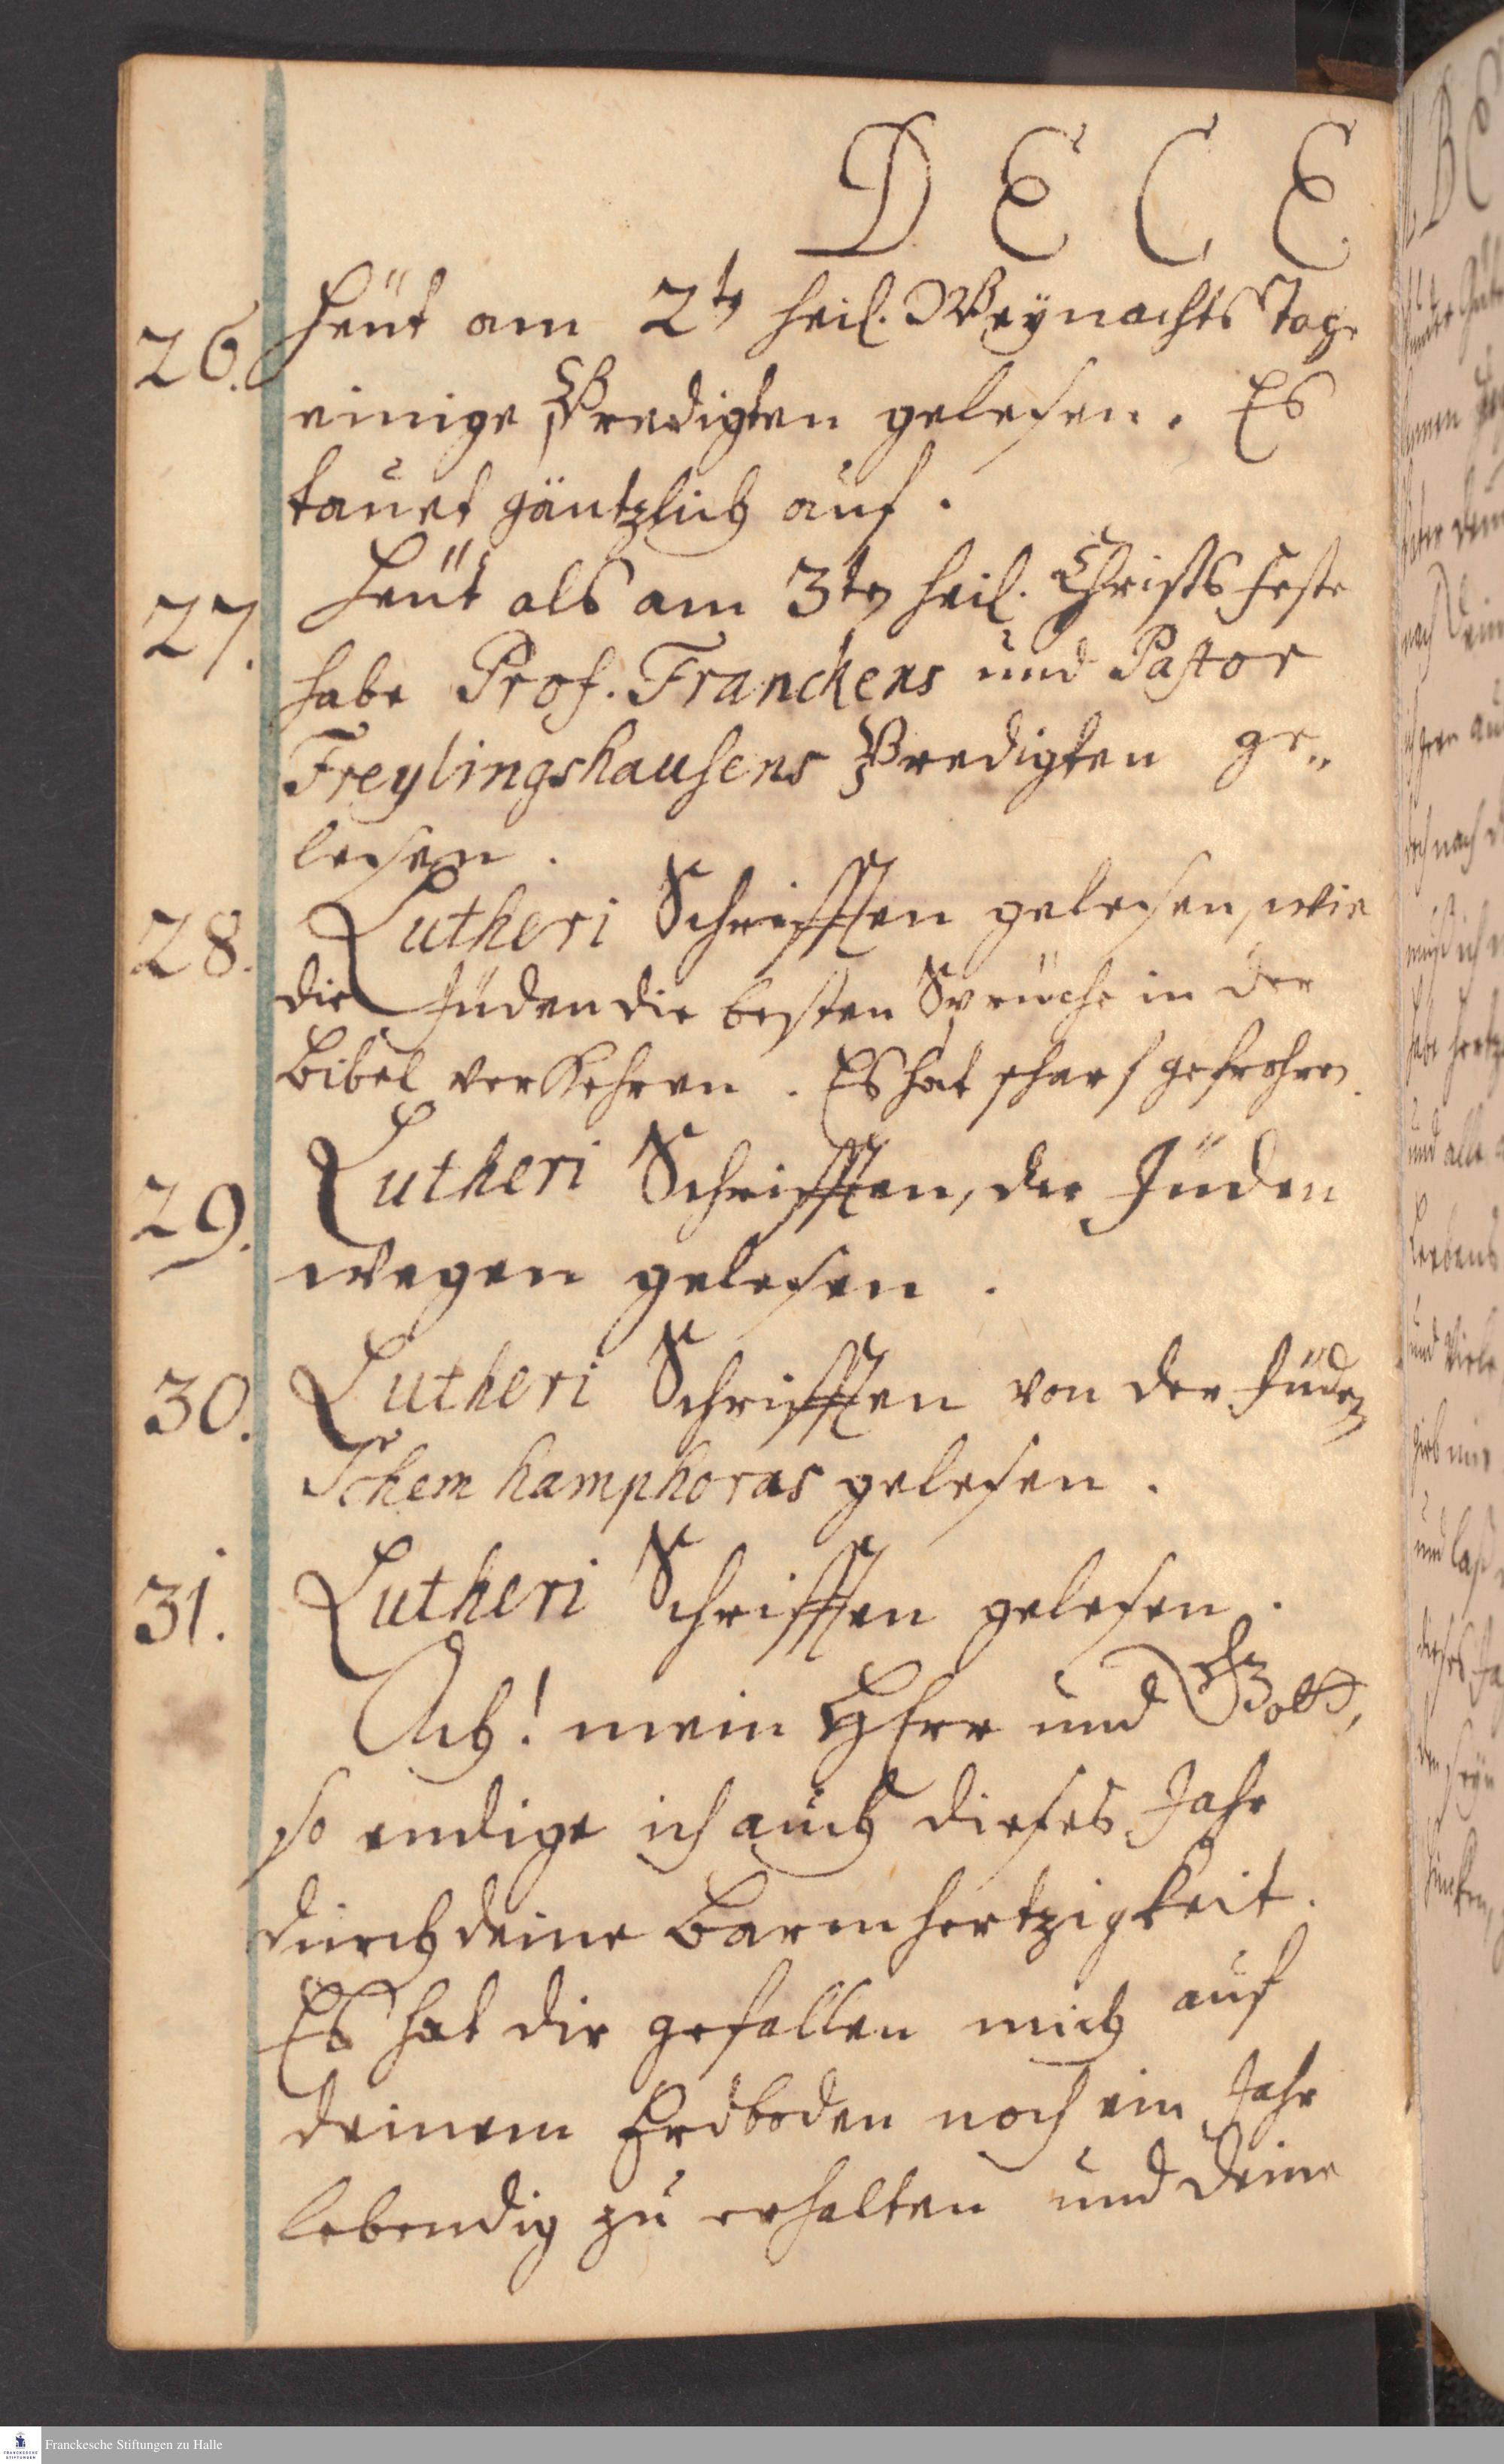 DECE
26. Heüt am 2tn heil. Weynachts Tage
einige Predigten gelesen. Es
tauet gäntzlich auf.
27. Heüt als am 3ten heil. Christs Feste
habe Prof. Franckens und Pastor
Freylingshausens Predigten ge„
lesen.
28. Lutheri Schrifften gelesen, wie
die Jüden die besten Sprüche in der
Bibel verkehren. Es hat scharf gefrohren.
29. Lutheri Schrifften, der Jüden
wegen gelesen.
30. Lutheri Schrifften von der Jüden
Schem hamphoras gelesen.
31. Lutheri Schrifften gelesen.
Ach! mein HErr und Gott,
so endige ich auch dieses Jahr
durch deine Barmhertzigkeit.
Es hat dir gefallen mich auf
deinem Erdboden noch ein Jahr
lebendig zu erhalten und deine
Franckesche Stiftungen zu Halle